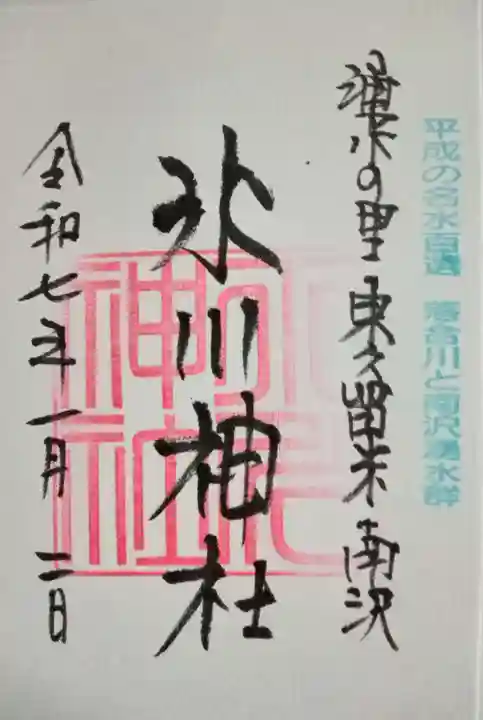 平成の名水百選 落合川と南沢湧水群
湧水の里 東久留米 南沢
氷川神社
氷川神社
令和七年一月二日